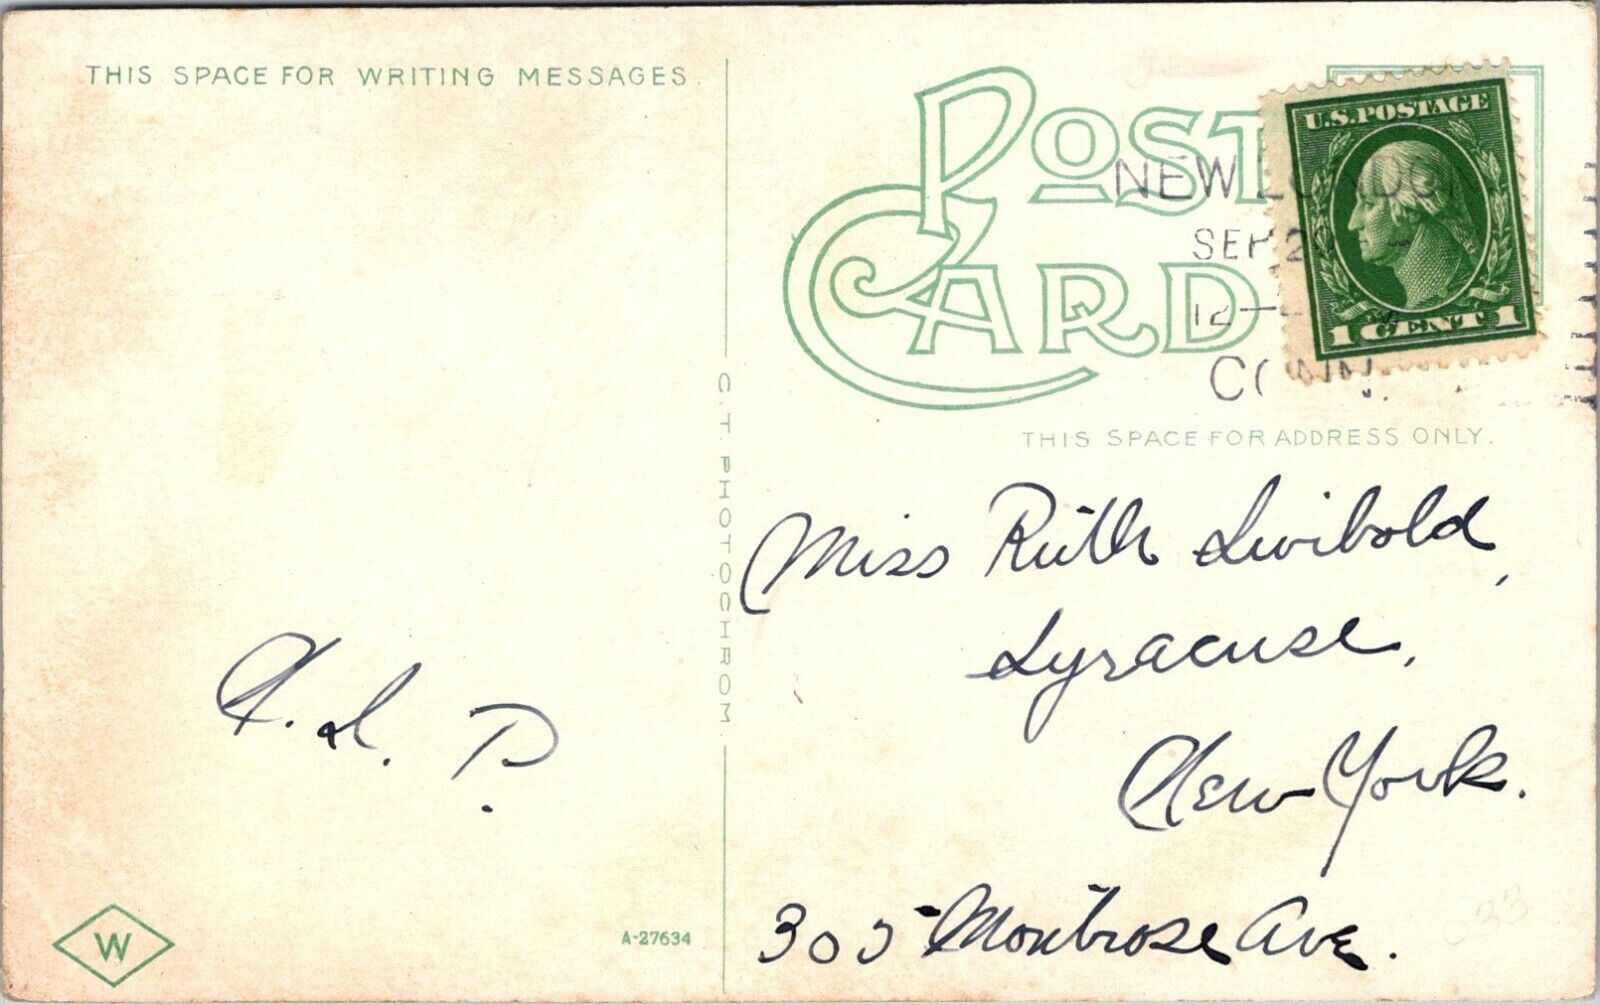 THIS SPACE FOR WRITING MESSAGES.
POST
CARD
U.S. POSTAGE
1 CENT 1
NEW LONDON
SEP 29
12—
CONN.
C. T. PHOTOCHROM.
THIS SPACE FOR ADDRESS ONLY.
Miss Ruth
Syracuse,
New York.
305 Montrose Ave.
P.
W
A-27634
033